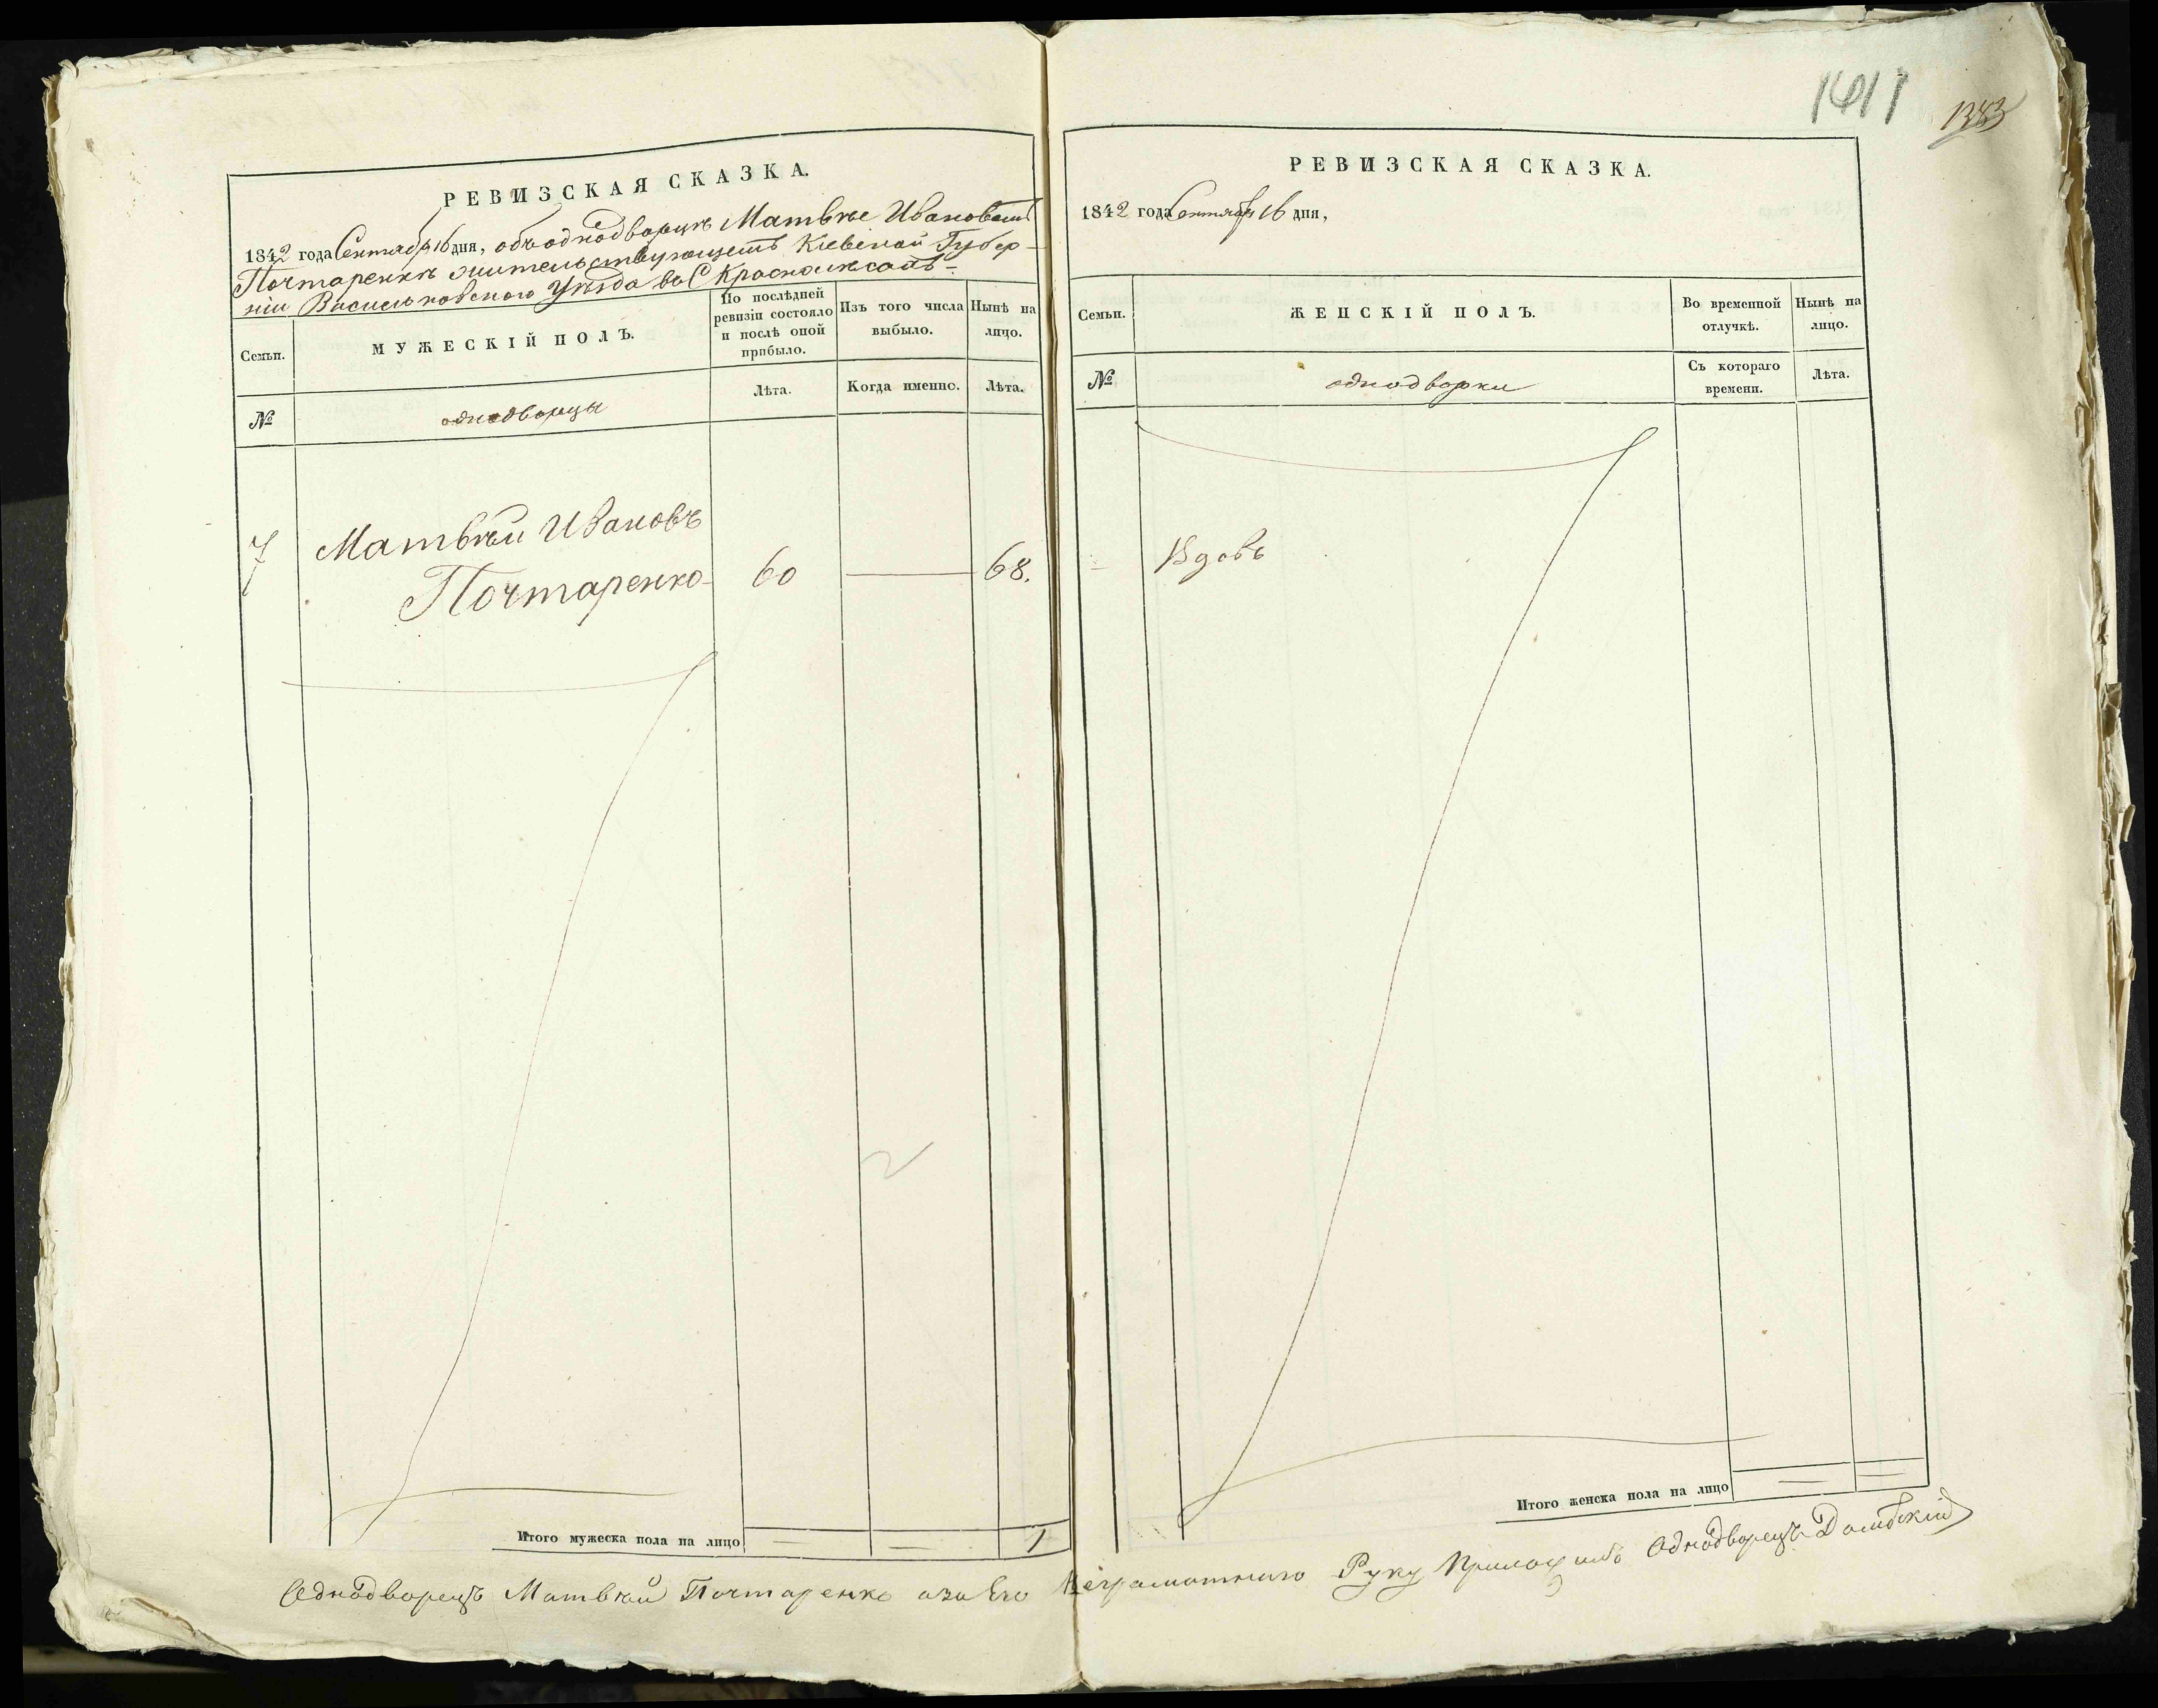 РЕВИЗСКАЯ СКАЗКА.
1842 года Сентября 16 дня, объ однодворцѣ Матвѣе Ивановомъ
Почтаренкѣ жительствующемъ Кіевской Губер-
ніи Васильковскаго Уѣзда во С
Семьи.
МУЖЕСКІЙ ПОЛЪ.
По послѣдней
ревизіи состояло
и послѣ оной
прибыло.
Изъ того числа
выбыло.
Нынѣ на
лицо.
№
однодворцы
Лѣта.
Когда именно.
Лѣта.
7
Матвѣй Ивановъ
Почтаренко
60
68.
Итого мужеска пола на лицо
1
1383
РЕВИЗСКАЯ СКАЗКА.
1842 года Сентября 16 дня,
Семьи.
ЖЕНСКІЙ ПОЛЪ.
Во временной
отлучкѣ.
Нынѣ на
лицо.
№
однодворки
Съ котораго
времени.
Лѣта.
Вдовъ
Итого женска пола на лицо
Однодворецъ Матвѣй Почтаренко а за Его Неграмотнаго Руку Приложилъ Однодворецъ Домбскій